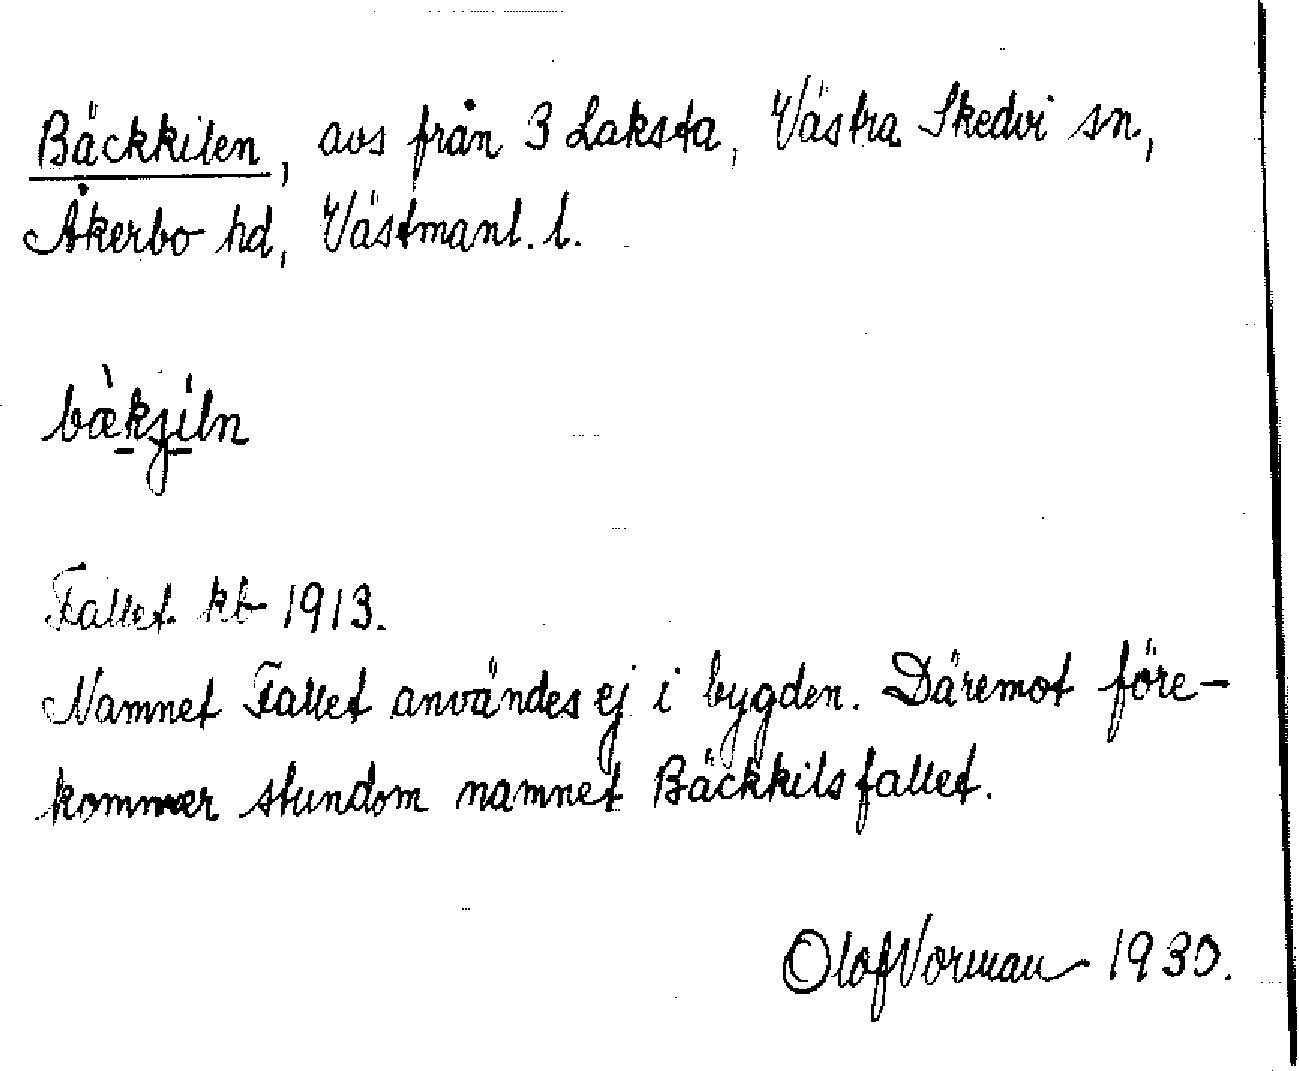 Bäckkilen, avs från 3 Laksta, Västra Skedvi sn,
Åkerbo hd, Västmanl. l.
bæ̀kʒíln
Fallet kb 1913.
Namnet Fallet användes ej i bygden. Däremot före-
kommer stundom namnet Bäckkilsfallet.
Olof Vorman 1930.